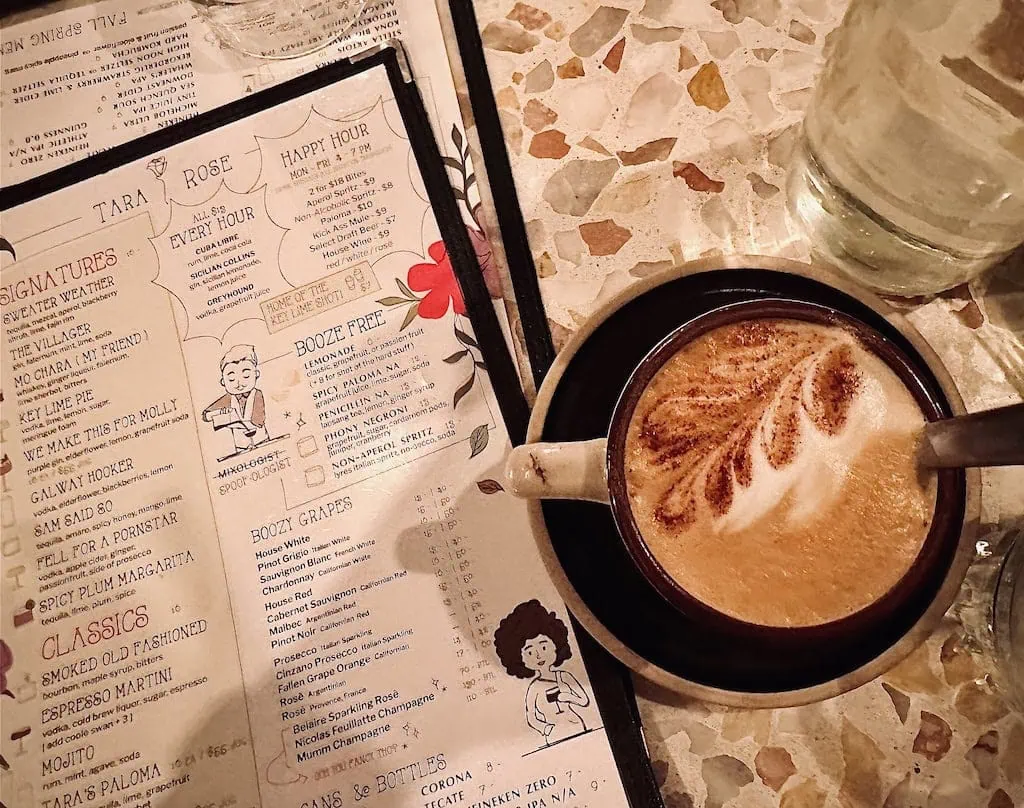 FALL SPRING MEN
HARD KOMBUCHA
HIGH NOON SELTZER OR TEQUILA SELTZER
STRAWBERRY & LIME CIDER
DOWNEAST CIDER
SEA QUENCH SOUR
TINY JUICE IPA
MICHELOB ULTRA
GUINNESS 0.0
ATHLETIC IPA N/A
HEINEKEN ZERO
TARA ROSE
SIGNATURES 16
SWEATER WEATHER
tequila, mezcal, aperol, blackberry
THE VILLAGER
gin, falernum, mint, lime, soda
MO CHARA ( MY FRIEND )
whiskey, ginger liqueur, falernum,
lime sherbet, bitters
KEY LIME PIE
vodka, lime, lemon, sugar,
meringue foam
WE MAKE THIS FOR MOLLY
purple gin, elderflower, lemon, grapefruit soda
GALWAY HOOKER
vodka, elderflower, blackberries, lemon
SAM SAID SO
tequila, amaro, spicy honey, mango, lime
FELL FOR A PORNSTAR
vodka, apple cider, ginger,
passionfruit, side of prosecco
SPICY PLUM MARGARITA
tequila, lime, plum, spice
CLASSICS 16
SMOKED OLD FASHIONED
bourbon, maple syrup, bitters
ESPRESSO MARTINI
vodka, cold brew liquor, sugar, espresso
( add cookie swan + 3 )
MOJITO
rum, mint, agave, soda
TARA'S PALOMA
tequila, lime, grapefruit
ALL $12
EVERY HOUR
CUBA LIBRE
rum, lime, coca cola
SICILIAN COLLINS
gin, sicilian lemonade,
lemon juice
GREYHOUND
vodka, grapefruit juice
HAPPY HOUR
MON - FRI 4 - 7 PM
2 for $18 Bites
Aperol Spritz - $9
Non-Alcoholic Spritz - $8
Paloma - $10
Kick Ass Mule - $9
Select Draft Beer - $7
House Wine - $9
red / white / rosé
HOME OF THE
KEY LIME SHOT!
MIXOLOGIST
SPOOF-OLOGIST
BOOZE FREE
LEMONADE
classic, grapefruit, or passion fruit
(+ 8 for shot of the hard stuff)
SPICY PALOMA NA
grapefruit juice, lime, sugar, soda
PENICHLIN NA
lapsang tea, lemon, ginger syrup
PHONY NEGRONI
grapefruit, sugar, cardamom pods,
juniper, cranberry
NON-APEROL SPRITZ
lyres italian spritz, no-secco, soda
BOOZY GRAPES
House White
Pinot Grigio Italian White
Sauvignon Blanc French White
Chardonnay Californian White
House Red
Cabernet Sauvignon Californian Red
Malbec Argentinian Red
Pinot Noir Californian Red
Prosecco Italian Sparkling
Cinzano Prosecco Italian Sparkling
Fallen Grape Orange Californian
Rosé Argentinian
Rosé Provence, France
Belaire Sparkling Rosé
Nicolas Feuillatte Champagne
Mumm Champagne
OOH YOU FANCY THO?
CANS & BOTTLES
CORONA 8
TECATE 7
HEINEKEN ZERO 7
IPA N/A 9